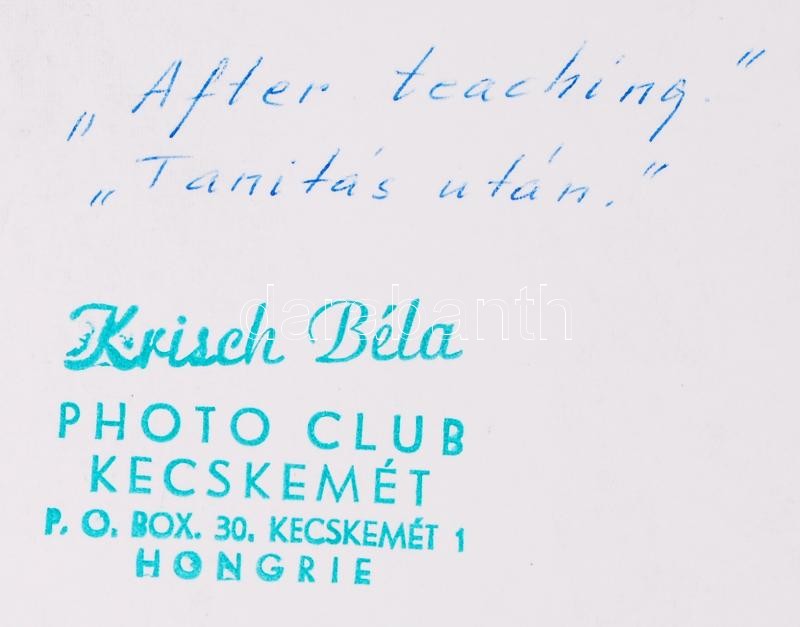 „After teaching.”
„Tanitás után.”
darabanth
Krisch Béla
PHOTO CLUB
KECSKEMÉT
P. O. BOX. 30. KECSKEMÉT 1
HONGRIE